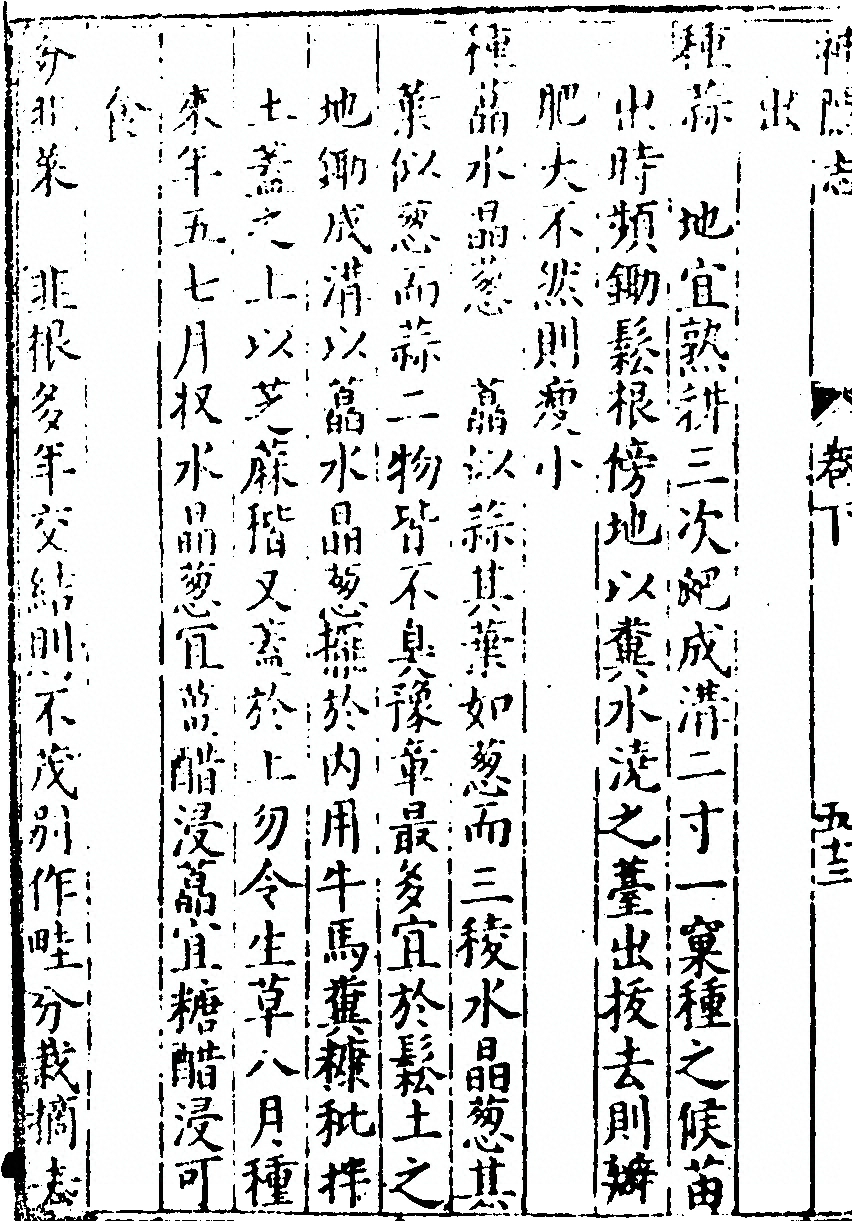 神隱志 卷下 五十三
出
種蒜 地宜熟耕三次耙成溝二寸一窠種之候苗
出時頻鋤鬆根傍地以糞水澆之薹出拔去則瓣
肥大不然則瘦小
種藠水晶葱 藠似蒜其葉如葱而三稜水晶葱其
葉似葱而蒜二物皆不臭豫章最多宜於鬆土之
地鋤成溝以藠水晶葱擺於内用牛馬糞糠秕拌
土蓋之上以芝蔴稭又蓋於上勿令生草八月種
來年五七月收水晶葱宜醋浸藠宜糖醋浸可
食
分韭菜 韭根多年交結則不茂别作畦分栽摘去